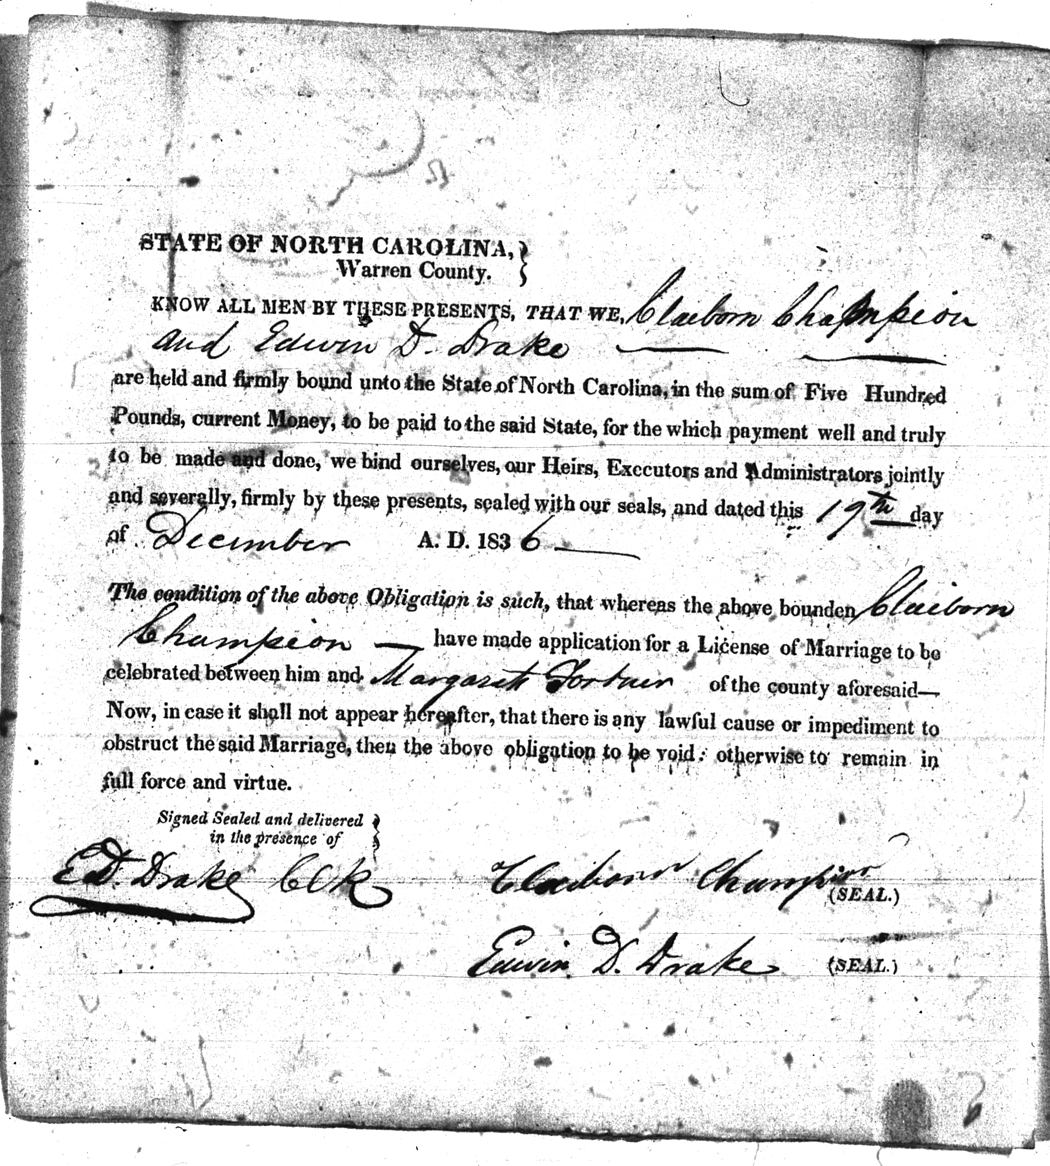 STATE OF NORTH CAROLINA, }
Warren County. }
KNOW ALL MEN BY THESE PRESENTS, THAT WE, Claiborn Champion
and Edwin D. Drake
are held and firmly bound unto the State of North Carolina, in the sum of Five Hundred
Pounds, current Money, to be paid to the said State, for the which payment well and truly
to be made and done, we bind ourselves, our Heirs, Executors and Administrators jointly
and severally, firmly by these presents, sealed with our seals, and dated this 19th day
of December A. D. 1836
The condition of the above Obligation is such, that whereas the above bounden Claiborn
Champion — have made application for a License of Marriage to be
celebrated between him and Margarett Fortner of the county aforesaid—
Now, in case it shall not appear hereafter, that there is any lawful cause or impediment to
obstruct the said Marriage, then the above obligation to be void: otherwise to remain in
full force and virtue.
Signed Sealed and delivered }
in the presence of }
E D. Drake Clk Claiborn Champion (SEAL.)
Edwin D. Drake (SEAL.)